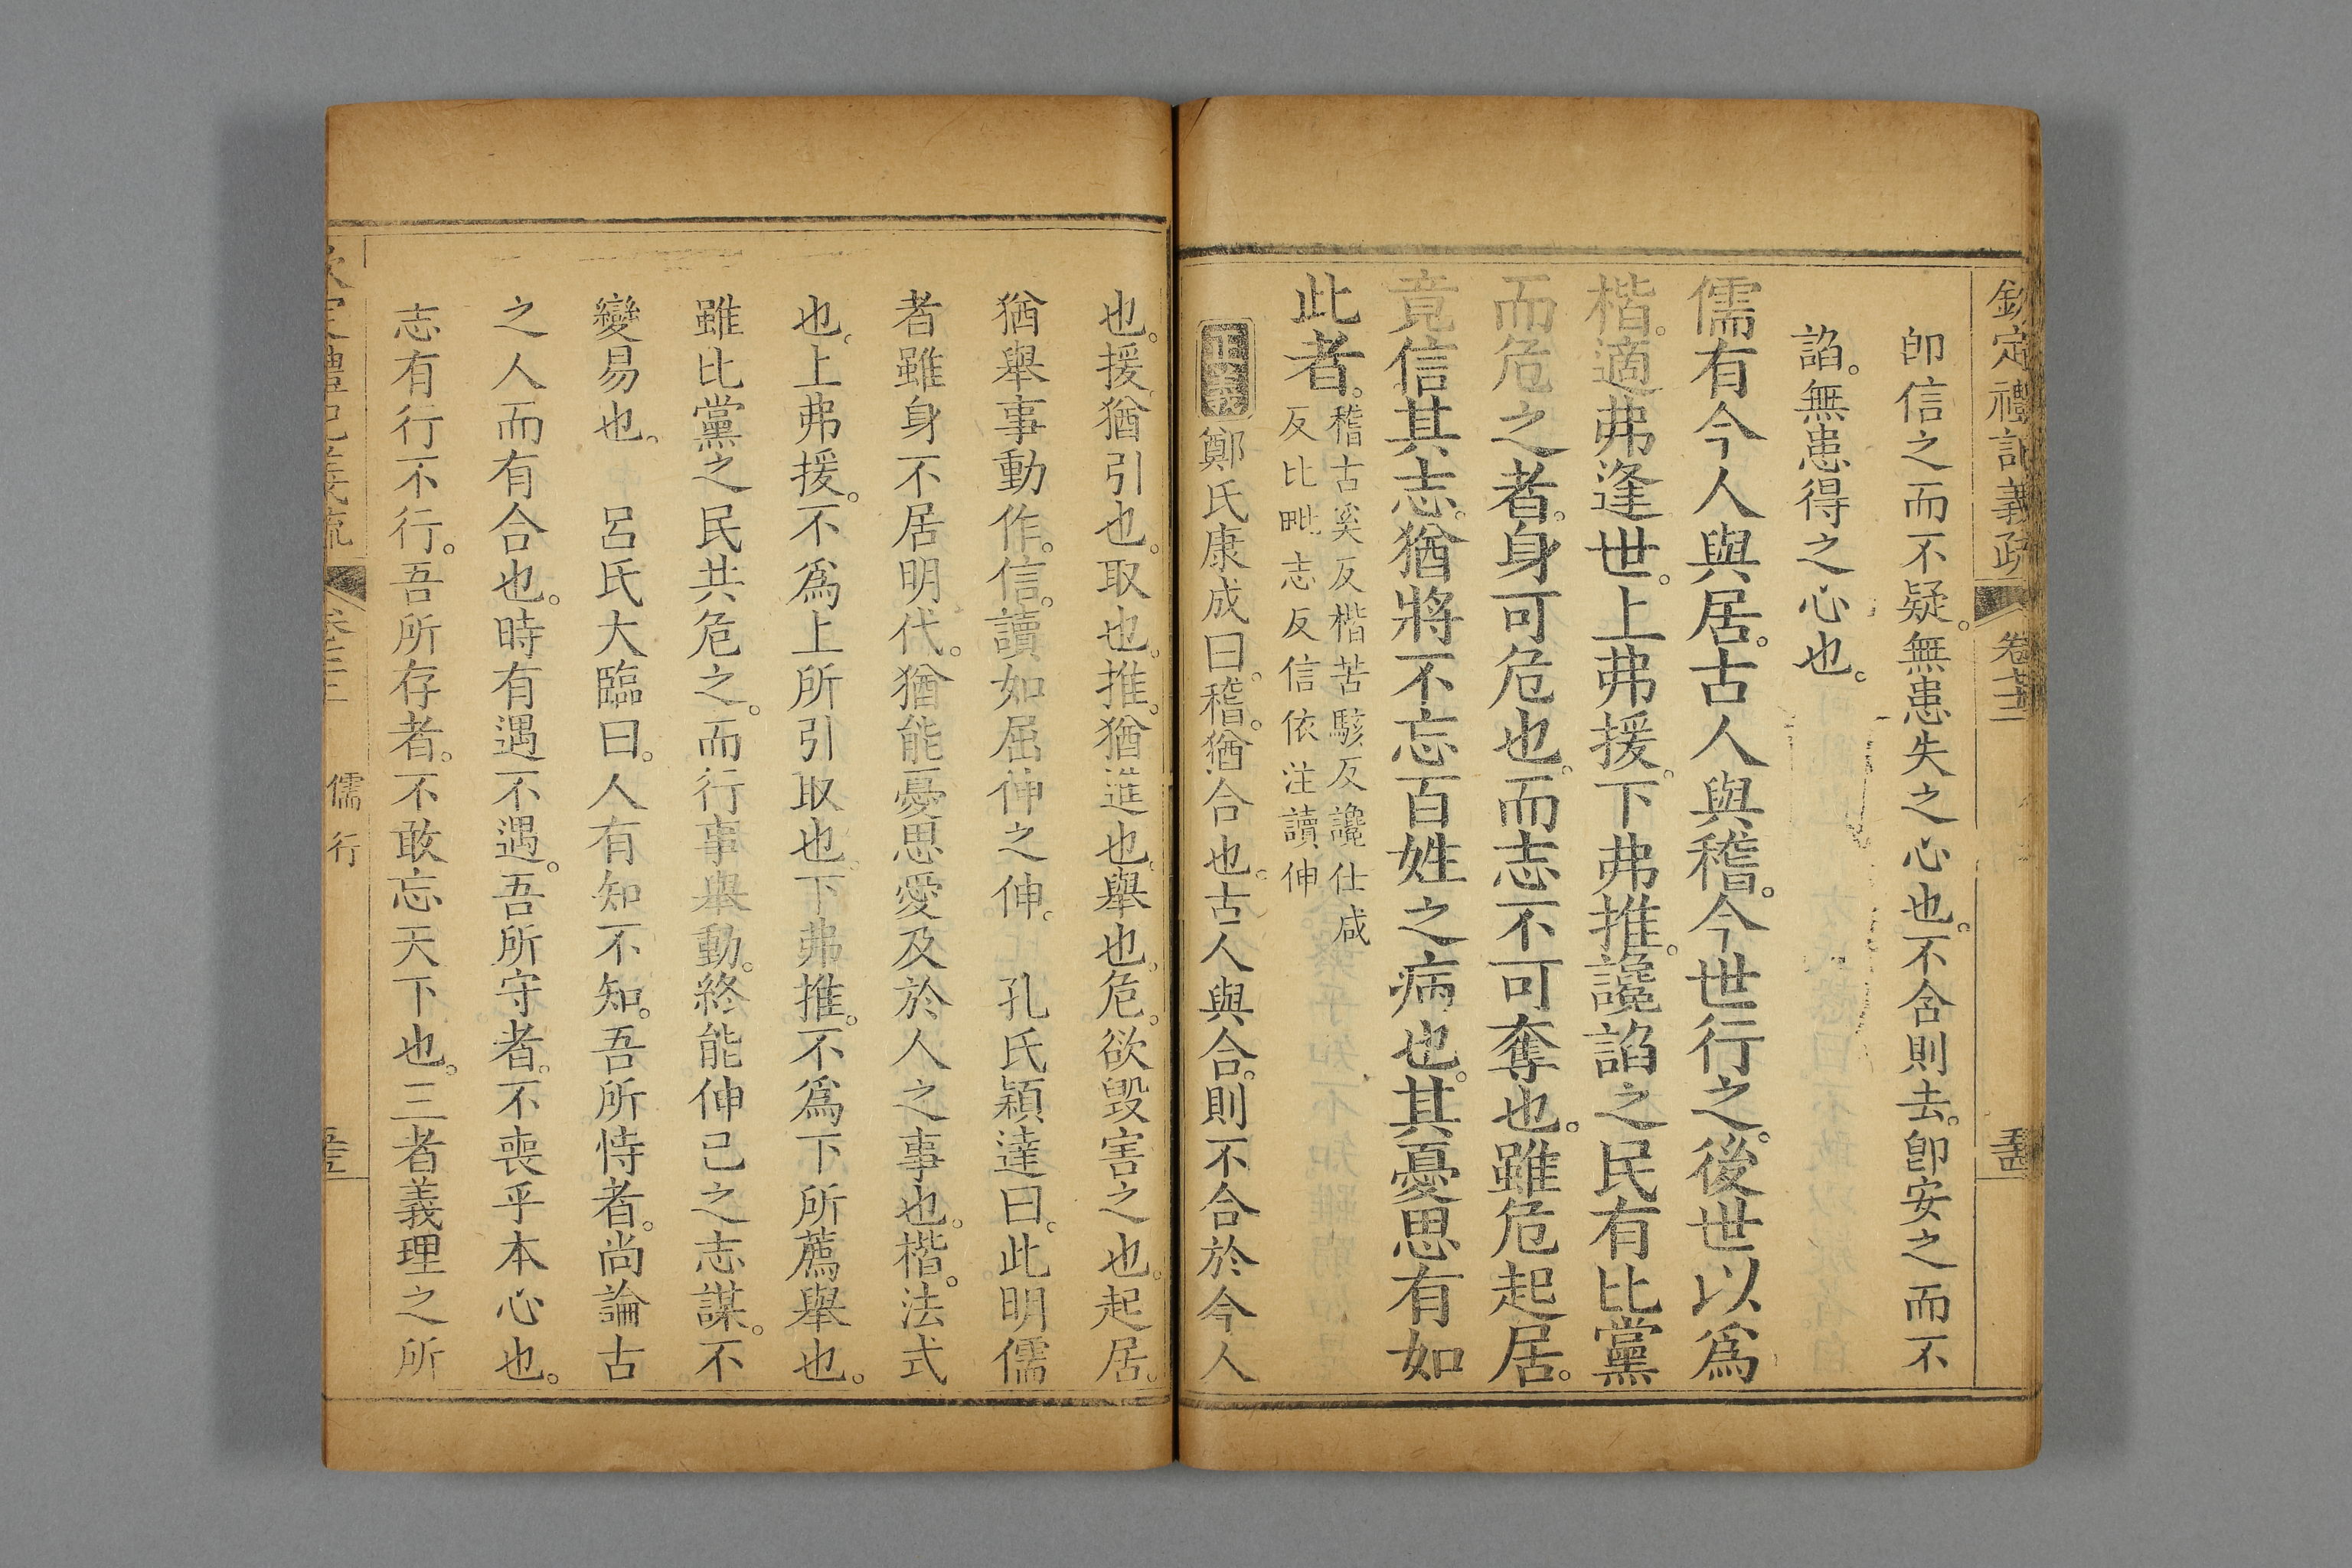 欽定禮記義疏 卷七十三
卽信之而不疑。無患失之心也。不合則去。卽安之而不
諂。無患得之心也。
儒有今人與居。古人與稽。今世行之。後世以爲
楷。適弗逢世。上弗援。下弗推。讒諂之民有比黨
而危之者。身可危也。而志不可奪也。雖危起居。
竟信其志。猶將不忘百姓之病也。其憂思有如
此者。
稽古奚反楷苦駭反讒仕咸
反比毗志反信依注讀伸
正義鄭氏康成曰。稽。猶合也。古人與合。則不合於今人
也。援。猶引也。取也。推。猶進也。舉也。危。欲毀害之也。起居。
猶舉事動作。信。讀如屈伸之伸。 孔氏穎達曰。此明儒
者雖身不居明代。猶能憂思愛及於人之事也。楷。法式
也。上弗援。不爲上所引取也。下弗推。不爲下所薦舉也。
雖比黨之民共危之。而行事舉動。終能伸己之志謀。不
變易也。 呂氏大臨曰。人有知不知。吾所恃者。尚論古
之人而有合也。時有遇不遇。吾所守者。不喪乎本心也。
志有行不行。吾所存者。不敢忘天下也。三者義理之所
禮記義疏 儒行